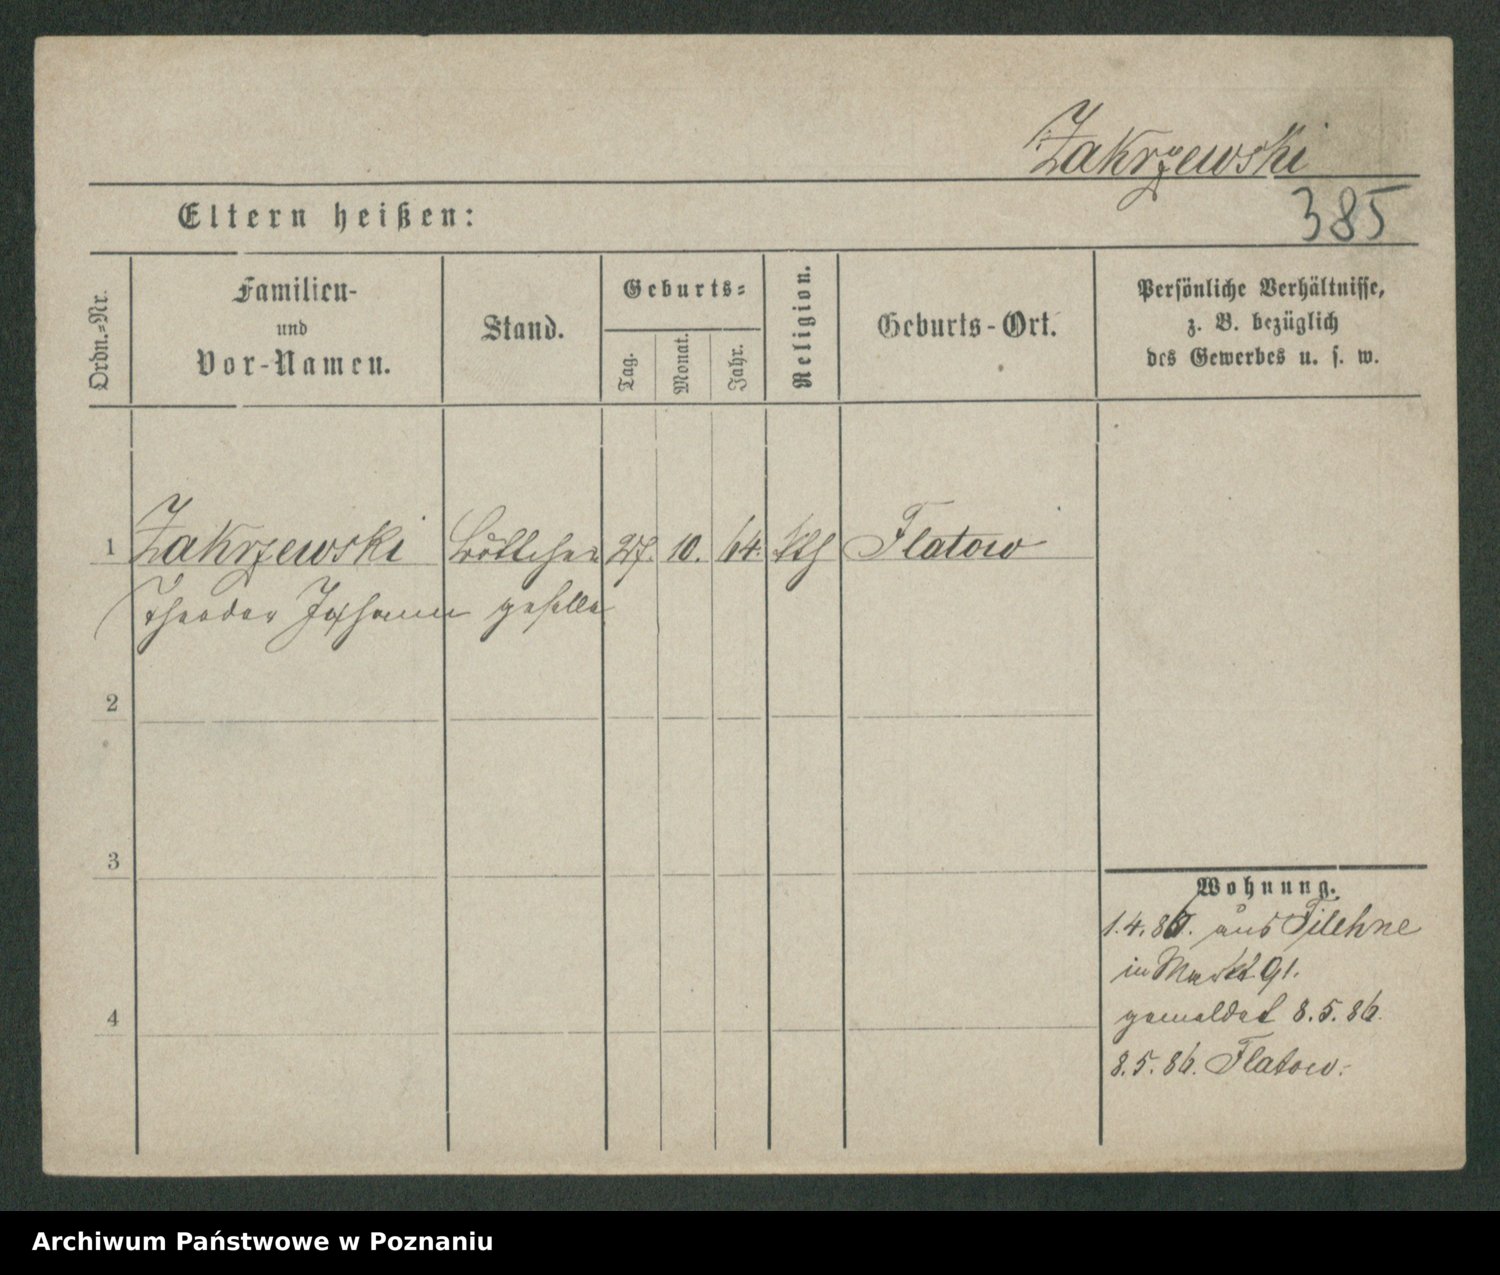 Zakrzewski
Eltern heißen:
385
Ordn.-Nr.
Familien-
und
Vor-Namen.
Stand.
Geburts-
Tag.
Monat.
Jahr.
Religion.
Geburts-Ort.
Persönliche Verhältnisse,
z. B. bezüglich
des Gewerbes u. s. w.
1 Zakrzewski Böttcher 27. 10. 64. kth Flatow
Theodor Johann geselle
2
3
4
Wohnung.
1.4.86. aus Filehne
in Markt 91.
gemeldet 8.5.86.
8.5.86. Flatow.
Archiwum Państwowe w Poznaniu